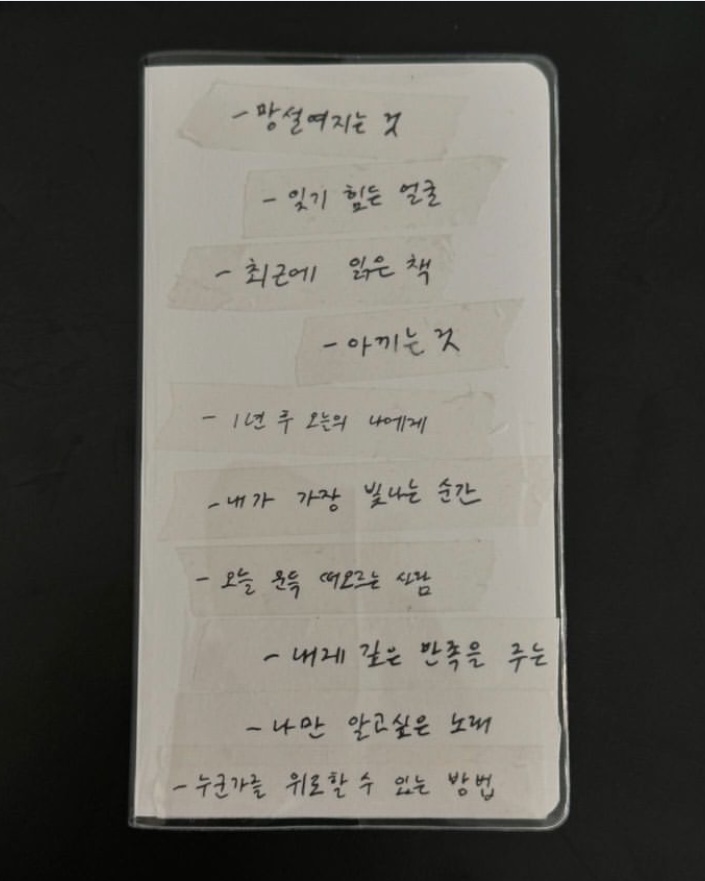 - 망설여지는 것
- 잊기 힘든 얼굴
- 최근에 읽은 책
- 아끼는 것
- 1년 후 오늘의 나에게
- 내가 가장 빛나는 순간
- 오늘 문득 떠오르는 사람
- 내게 깊은 만족을 주는
- 나만 알고싶은 노래
- 누군가를 위로할 수 있는 방법